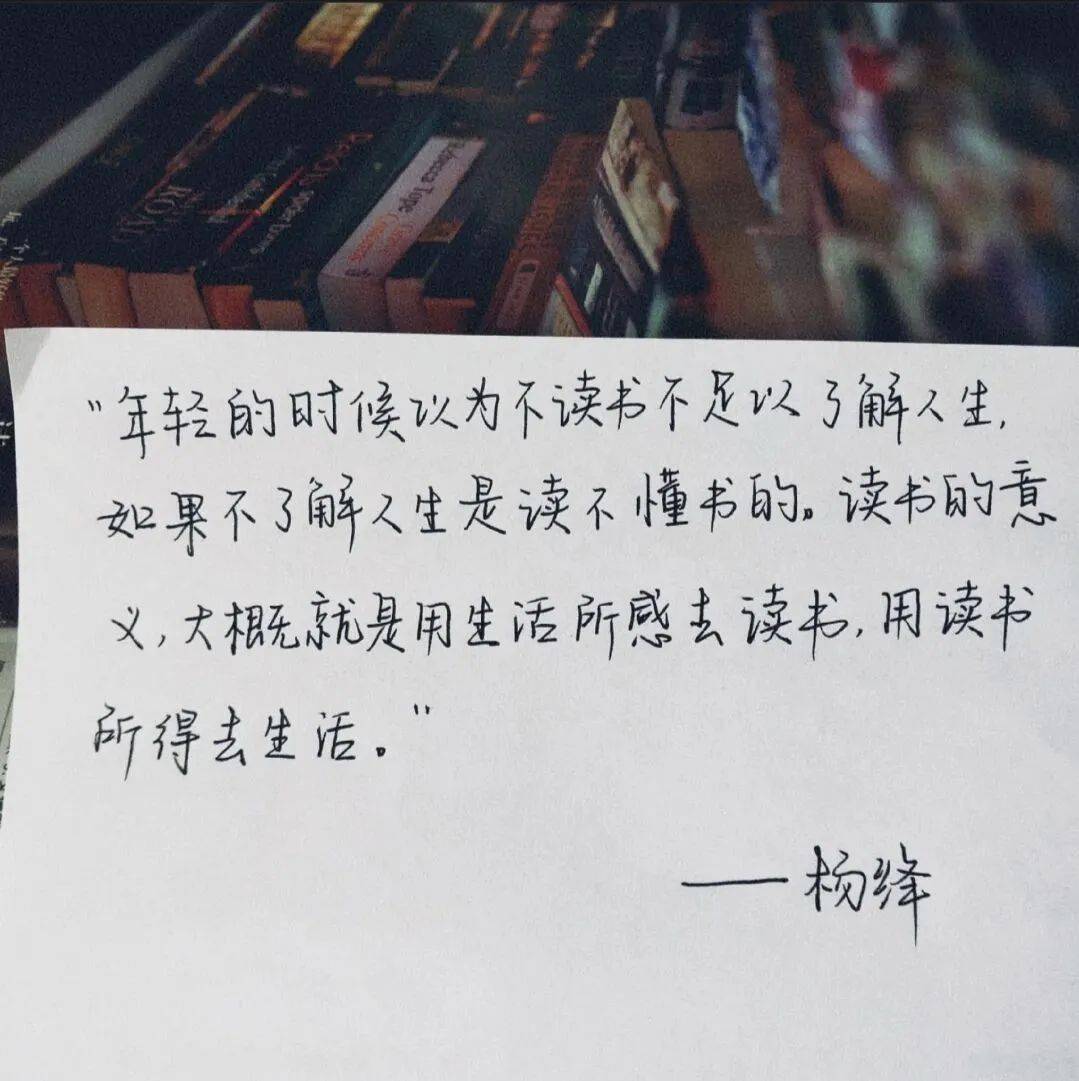 ROAD
Rebecca Tope
"年轻的时候以为不读书不足以了解人生,
如果不了解人生是读不懂书的。读书的意
义,大概就是用生活所感去读书,用读书
所得去生活。"
——杨绛